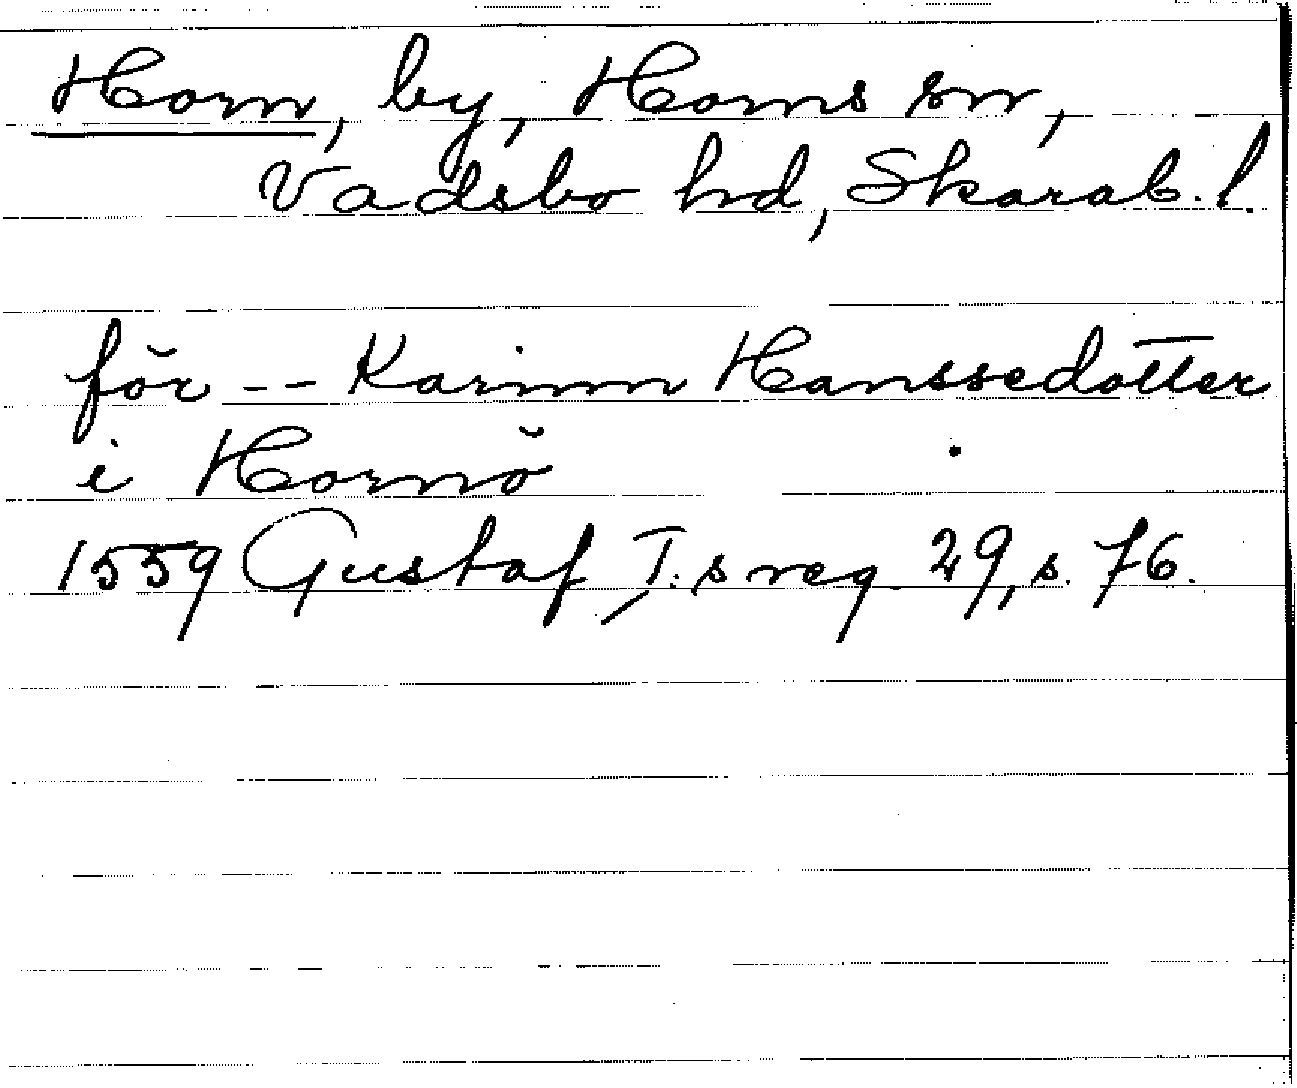 Horn, by, Horns sn,
Vadsbo hd, Skarab. l.
för -- Karinn Hanssedotter
i Hornö
1559 Gustaf I:s reg. 29, s. 76.